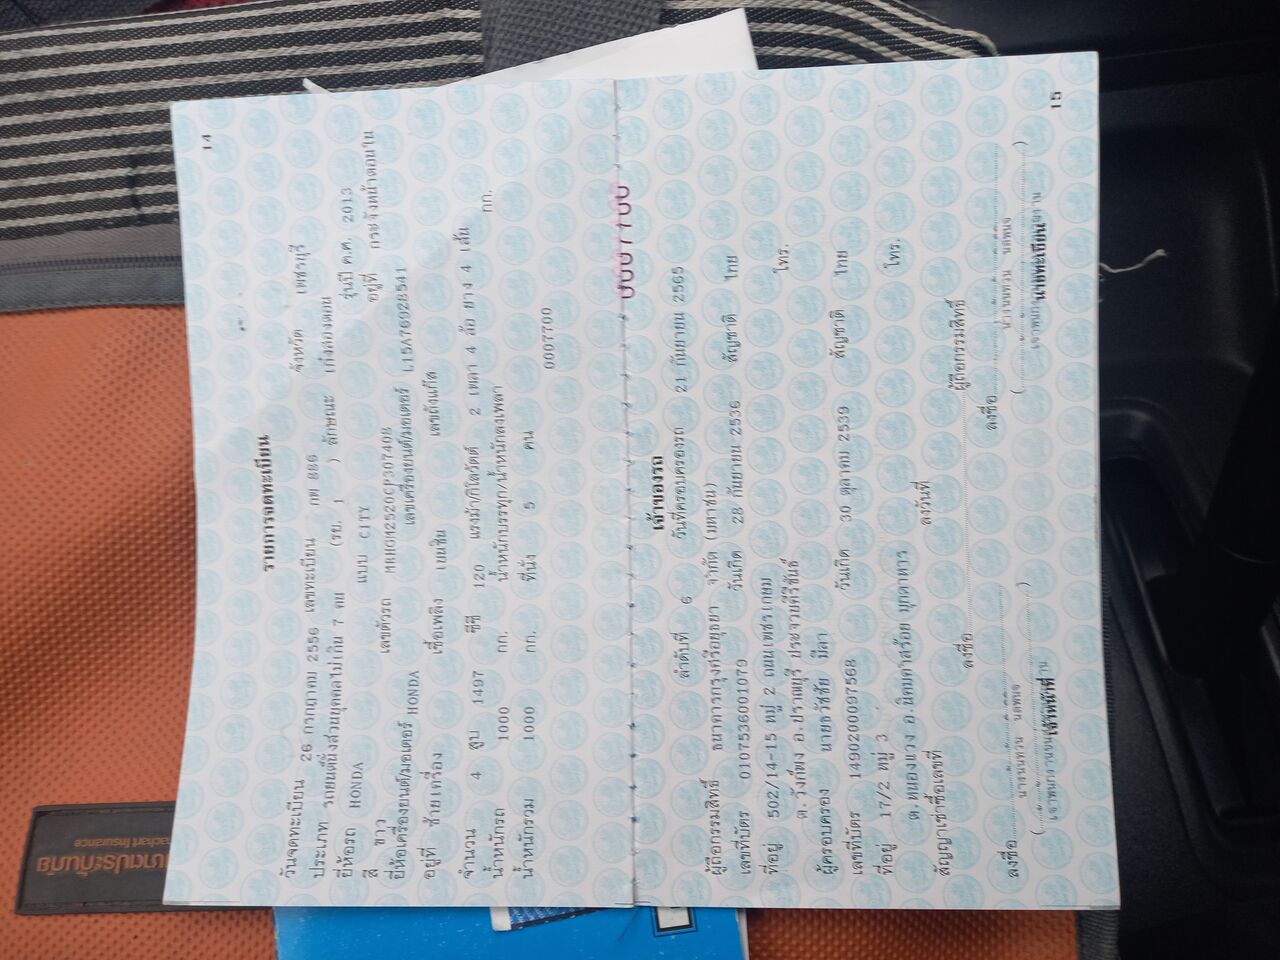 14
รายการจดทะเบียน
วันจดทะเบียน 26 กรกฎาคม 2556 เลขทะเบียน กพ 886 จังหวัด เพชรบุรี
ประเภท รถยนต์นั่งส่วนบุคคลไม่เกิน 7 คน (รย. 1 ) ลักษณะ เก๋งสองตอน
ยี่ห้อรถ HONDA แบบ CITY รุ่นปี ค.ศ. 2013
สี ขาว เลขตัวรถ MRHGM2520CP307408 อยู่ที่ กระจังหน้าตอนใน
ยี่ห้อเครื่องยนต์/มอเตอร์ HONDA เลขเครื่องยนต์/มอเตอร์ L15A76028541
อยู่ที่ ซ้ายเครื่อง เชื้อเพลิง เบนซิน เลขถังแก๊ส
จำนวน 4 สูบ 1497 ซีซี 120 แรงม้า/กิโลวัตต์ 2 เพลา 4 ล้อ ยาง 4 เส้น
น้ำหนักรถ 1000 กก. น้ำหนักบรรทุก/น้ำหนักลงเพลา กก.
น้ำหนักรวม 1000 กก. ที่นั่ง 5 คน
0007700
เจ้าของรถ
ลำดับที่ 6 วันที่ครอบครองรถ 21 กันยายน 2565
ผู้ถือกรรมสิทธิ์ ธนาคารกรุงศรีอยุธยา จำกัด (มหาชน)
เลขที่บัตร 0107536001079 วันเกิด 28 กันยายน 2536 สัญชาติ ไทย
ที่อยู่ 502/14-15 หมู่ 2 ถนนเพชรเกษม โทร.
ต.วังก์พง อ.ปราณบุรี ประจวบคีรีขันธ์
ผู้ครอบครอง นายธวัชชัย มีลา
เลขที่บัตร 1490200097568 วันเกิด 30 ตุลาคม 2539 สัญชาติ ไทย
ที่อยู่ 17/2 หมู่ 3 โทร.
ต.หนองแวง อ.นิคมคำสร้อย มุกดาหาร
สัญญาเช่าซื้อเลขที่ ลงวันที่
ลงชื่อ ผู้ถือกรรมสิทธิ์
ลงชื่อ ลงชื่อ
เจ้าหน้าที่ นายทะเบียน
15
ธนชาตประกันภัย
Thanachart Insurance